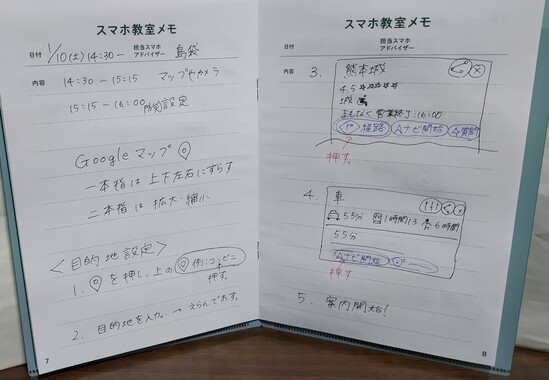 スマホ教室メモ
日付 1/10(土) 14:30- 担当スマホアドバイザー 島袋
内容 14:30 - 15:15 マップやカメラ
15:15 - 16:00 防災設定
Googleマップ
一本指は上下左右にずらす
二本指は拡大・縮小
<目的地設定>
1. を押し、上の 例:コンビニ
押す。
2. 目的地を入力。→ えらんでおす。
7
スマホ教室メモ
日付 担当スマホアドバイザー
内容 3.
熊本城
4.5 ☆☆☆☆
城
まもなく営業終了:16:00
経路 ナビ開始
押す。
4.
車
55分 1時間13 6時間
55分
ナビ開始
押す
5. 案内開始!
8